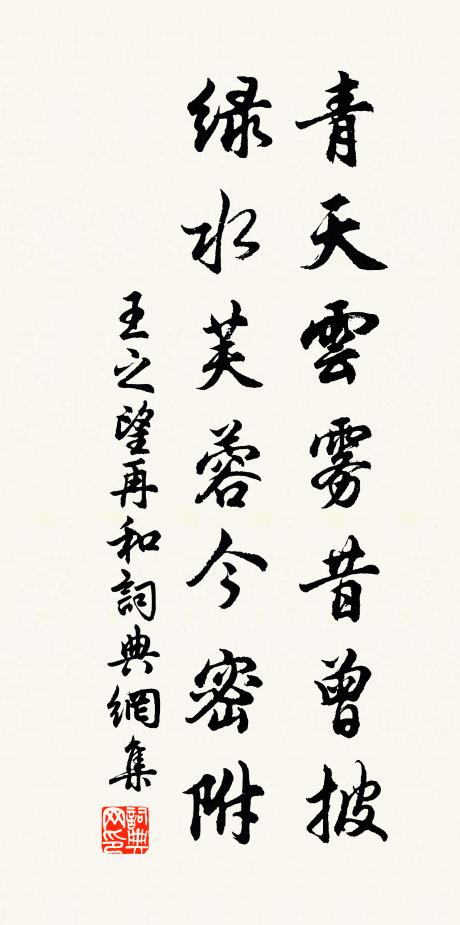 青天雲雾昔曾披
绿水芙蓉今密附
王之望再和詞典網集
詞典网印